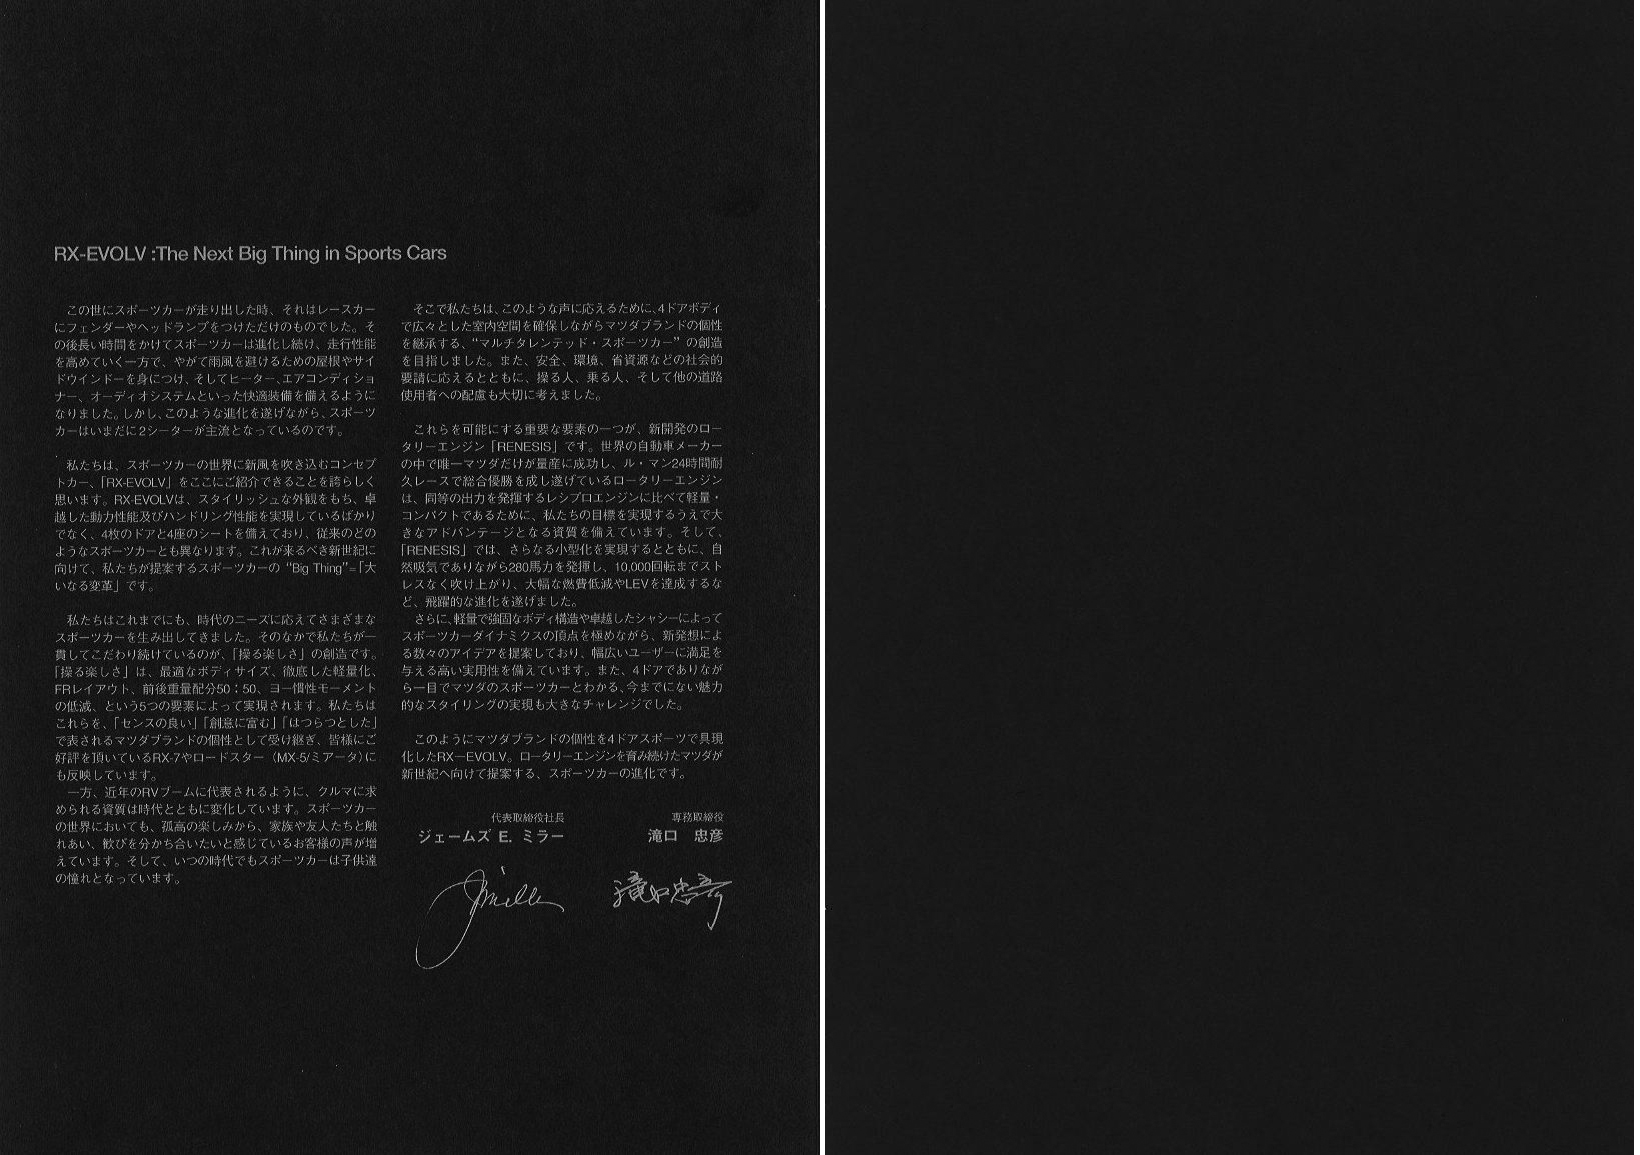 RX-EVOLV :The Next Big Thing in Sports Cars
この世にスポーツカーが走り出した時、それはレースカー
にフェンダーやヘッドランプをつけただけのものでした。そ
の後長い時間をかけてスポーツカーは進化し続け、走行性能
を高めていく一方で、やがて雨風を避けるための屋根やサイ
ドウインドーを身につけ、そしてヒーター、エアコンディショ
ナー、オーディオシステムといった快適装備を備えるように
なりました。しかし、このような進化を遂げながら、スポーツ
カーはいまだに2シーターが主流となっているのです。
私たちは、スポーツカーの世界に新風を吹き込むコンセプ
トカー、「RX-EVOLV」をここにご紹介できることを誇らしく
思います。RX-EVOLVは、スタイリッシュな外観をもち、卓
越した動力性能及びハンドリング性能を実現しているばかり
でなく、4枚のドアと4座のシートを備えており、従来のどの
ようなスポーツカーとも異なります。これが来るべき新世紀に
向けて、私たちが提案するスポーツカーの “Big Thing”=「大
いなる変革」です。
私たちはこれまでにも、時代のニーズに応えてさまざまな
スポーツカーを生み出してきました。そのなかで私たちが一
貫してこだわり続けているのが、「操る楽しさ」の創造です。
「操る楽しさ」は、最適なボディサイズ、徹底した軽量化、
FRレイアウト、前後重量配分50：50、ヨー慣性モーメント
の低減、という5つの要素によって実現されます。私たちは
これらを、「センスの良い」「創意に富む」「はつらつとした」
で表されるマツダブランドの個性として受け継ぎ、皆様にご
好評を頂いているRX-7やロードスター（MX-5/ミアータ）に
も反映しています。
一方、近年のRVブームに代表されるように、クルマに求
められる資質は時代とともに変化しています。スポーツカー
の世界においても、孤高の楽しみから、家族や友人たちと触
れあい、歓びを分かち合いたいと感じているお客様の声が増
えています。そして、いつの時代でもスポーツカーは子供達
の憧れとなっています。
そこで私たちは、このような声に応えるために、4ドアボディ
で広々とした室内空間を確保しながらマツダブランドの個性
を継承する、“マルチタレンテッド・スポーツカー” の創造
を目指しました。また、安全、環境、省資源などの社会的
要請に応えるとともに、操る人、乗る人、そして他の道路
使用者への配慮も大切に考えました。
これらを可能にする重要な要素の一つが、新開発のロー
タリーエンジン「RENESIS」です。世界の自動車メーカー
の中で唯一マツダだけが量産に成功し、ル・マン24時間耐
久レースで総合優勝を成し遂げているロータリーエンジン
は、同等の出力を発揮するレシプロエンジンに比べて軽量・
コンパクトであるために、私たちの目標を実現するうえで大
きなアドバンテージとなる資質を備えています。そして、
「RENESIS」では、さらなる小型化を実現するとともに、自
然吸気でありながら280馬力を発揮し、10,000回転までスト
レスなく吹け上がり、大幅な燃費低減やLEVを達成するな
ど、飛躍的な進化を遂げました。
さらに、軽量で強固なボディ構造や卓越したシャシーによって
スポーツカーダイナミクスの頂点を極めながら、新発想によ
る数々のアイデアを提案しており、幅広いユーザーに満足を
与える高い実用性を備えています。また、4ドアでありなが
ら一目でマツダのスポーツカーとわかる、今までにない魅力
的なスタイリングの実現も大きなチャレンジでした。
このようにマツダブランドの個性を4ドアスポーツで具現
化したRX－EVOLV。ロータリーエンジンを育み続けたマツダが
新世紀へ向けて提案する、スポーツカーの進化です。
代表取締役社長
ジェームズ E. ミラー
専務取締役
滝口 忠彦
JMiller
滝口忠彦